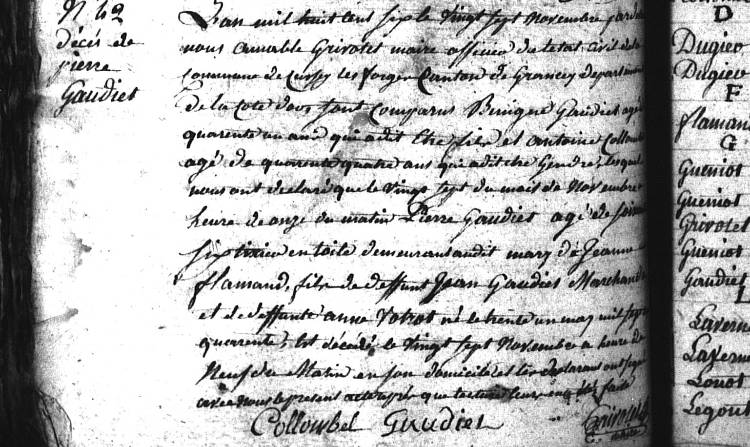 N 42
décés de
pierre
Gaudiet
L'an mil huit cent six le vingt sept Novembre pardev
nous amable Grivotet maire officier de l'etat civil de la
commune de Cussey les forges Canton de Grancey departement
de la cote d'or sont comparus Benigne Gaudiet agé
quarente un ans qui a dit etre fils et antoine Collombel
agé de quarente quatre ans qui a dit etre Gendre, lesquels
nous ont declaré que le vingt sept du mois de Novembre
heure de onze du matin Pierre Gaudiet agé de soixante
six en toile demeurant audit mary de Jeanne
flamand, fils de deffunt Jean Gaudiet Marchand
et de deffunte anne né le trente un may mil sept
quarente, est décédé le vingt sept Novembre a heure de
Neuf du Matin en son domicile et les declarans ont signé
avec nous le present acte après que lecture leur en a été faite
Collombel Gaudiet Grivotet
maire
D
Dugied
Dugied
F
flamand
G
Gueniot
Gueniot
Grivotet
Gueniot
Gaudiet
L
Laverne
Laverne
Louot
Legout